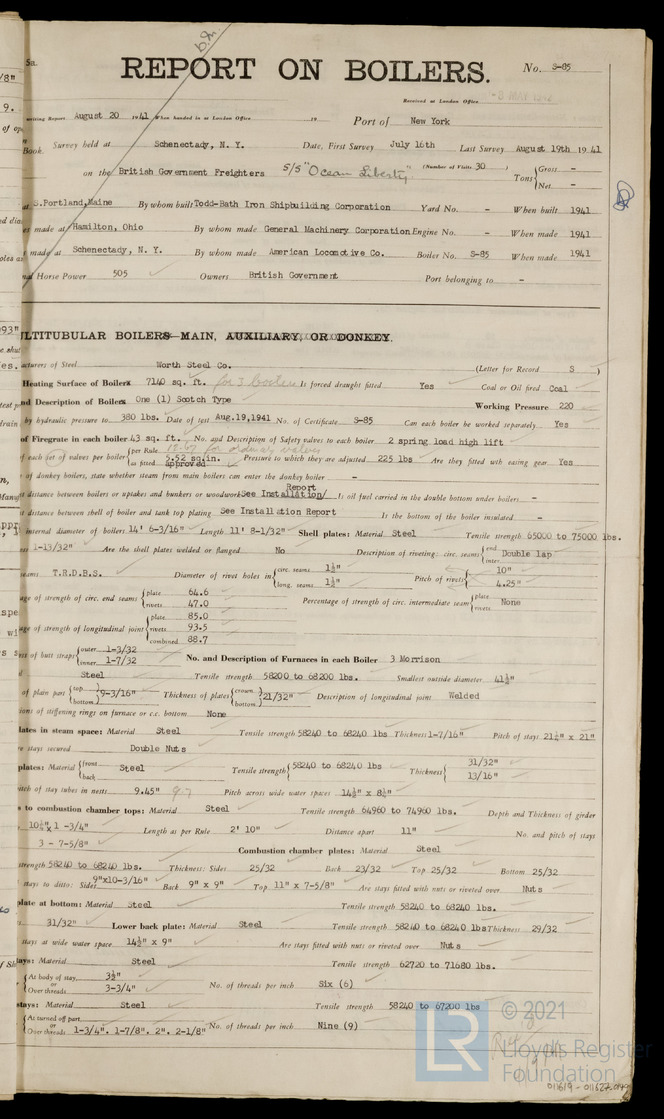 REPORT ON BOILERS.
No. S-85
Received at London Office
writing Report August 20 1941 When handed in at London Office 19 Port of New York
Book. Survey held at Schenectady, N. Y. Date, First Survey July 16th Last Survey August 19th 1941
on the British Government Freighters S/S "Ocean Liberty" (Number of Visits 30 ) Tons { Gross - Net -
at S.Portland,Maine By whom built Todd-Bath Iron Shipbuilding Corporation Yard No. - When built 1941
made at Hamilton, Ohio By whom made General Machinery Corporation Engine No. - When made 1941
made at Schenectady, N. Y. By whom made American Locomotive Co. Boiler No. S-85 When made 1941
Horse Power 505 Owners British Government Port belonging to -
LTITUBULAR BOILERS—MAIN, AUXILIARY, OR DONKEY.
acturers of Steel Worth Steel Co. (Letter for Record S )
Heating Surface of Boilers 7140 sq. ft. for 3 boilers Is forced draught fitted Yes Coal or Oil fired Coal
nd Description of Boilers One (1) Scotch Type Working Pressure 220
by hydraulic pressure to 380 lbs. Date of test Aug.19,1941 No. of Certificate S-85 Can each boiler be worked separately Yes
of Firegrate in each boiler 43 sq. ft. No. and Description of Safety valves to each boiler 2 spring load high lift
of each set of valves per boiler { per Rule 15.67 for ordinary valves
as fitted 5.52 sq.in. approved Pressure to which they are adjusted 225 lbs Are they fitted with easing gear Yes
of donkey boilers, state whether steam from main boilers can enter the donkey boiler -
st distance between boilers or uptakes and bunkers or woodwork See Installation Report Is oil fuel carried in the double bottom under boilers -
st distance between shell of boiler and tank top plating See Installation Report Is the bottom of the boiler insulated -
internal diameter of boilers 14' 6-3/16" Length 11' 8-1/32" Shell plates: Material Steel Tensile strength 65000 to 75000 lbs.
1-13/32" Are the shell plates welded or flanged No Description of riveting: circ. seams { end Double lap inter.
eams T.R.D.B.S. Diameter of rivet holes in { circ. seams 1½" long. seams 1½" Pitch of rivets { 10" 4.25"
age of strength of circ. end seams { plate 64.6 rivets 47.0 Percentage of strength of circ. intermediate seam { plate rivets None
age of strength of longitudinal joint { plate 85.0 rivets 93.5 combined 88.7
of butt straps { outer 1-3/32 inner 1-7/32 No. and Description of Furnaces in each Boiler 3 Morrison
Steel Tensile strength 58200 to 68200 lbs. Smallest outside diameter 41½"
of plain part { top bottom 9-3/16" Thickness of plates { crown bottom 21/32" Description of longitudinal joint Welded
ions of stiffening rings on furnace or c.c. bottom None
lates in steam space: Material Steel Tensile strength 58240 to 68240 lbs Thickness 1-7/16" Pitch of stays 21½" x 21"
stays secured Double Nuts
plates: Material { front back Steel Tensile strength { 58240 to 68240 lbs Thickness { 31/32" 13/16"
itch of stay tubes in nests 9.45" Pitch across wide water spaces 14½" x 8½"
s to combustion chamber tops: Material Steel Tensile strength 64960 to 74960 lbs. Depth and Thickness of girder
x 1 -3/4" Length as per Rule 2' 10" Distance apart 11" No. and pitch of stays
3 - 7-5/8" Combustion chamber plates: Material Steel
strength 58240 to 68240 lbs. Thickness: Sides 25/32 Back 23/32 Top 25/32 Bottom 25/32
stays to ditto: Sides 9"x10-3/16" Back 9" x 9" Top 11" x 7-5/8" Are stays fitted with nuts or riveted over Nuts
plate at bottom: Material Steel Tensile strength 58240 to 68240 lbs.
31/32" Lower back plate: Material Steel Tensile strength 58240 to 68240 lbs Thickness 29/32
stays at wide water space 14½" x 9" Are stays fitted with nuts or riveted over Nuts
tays: Material Steel Tensile strength 62720 to 71680 lbs.
{ At body of stay or Over threads 3½" 3-3/4" No. of threads per inch Six (6)
stays: Material Steel Tensile strength 58240 to 67200 lbs
{ At turned off part or Over threads 1-3/4", 1-7/8", 2", 2-1/8" No. of threads per inch Nine (9)
LR © 2021
Lloyd's Register
Foundation
011619 - 011627-0149